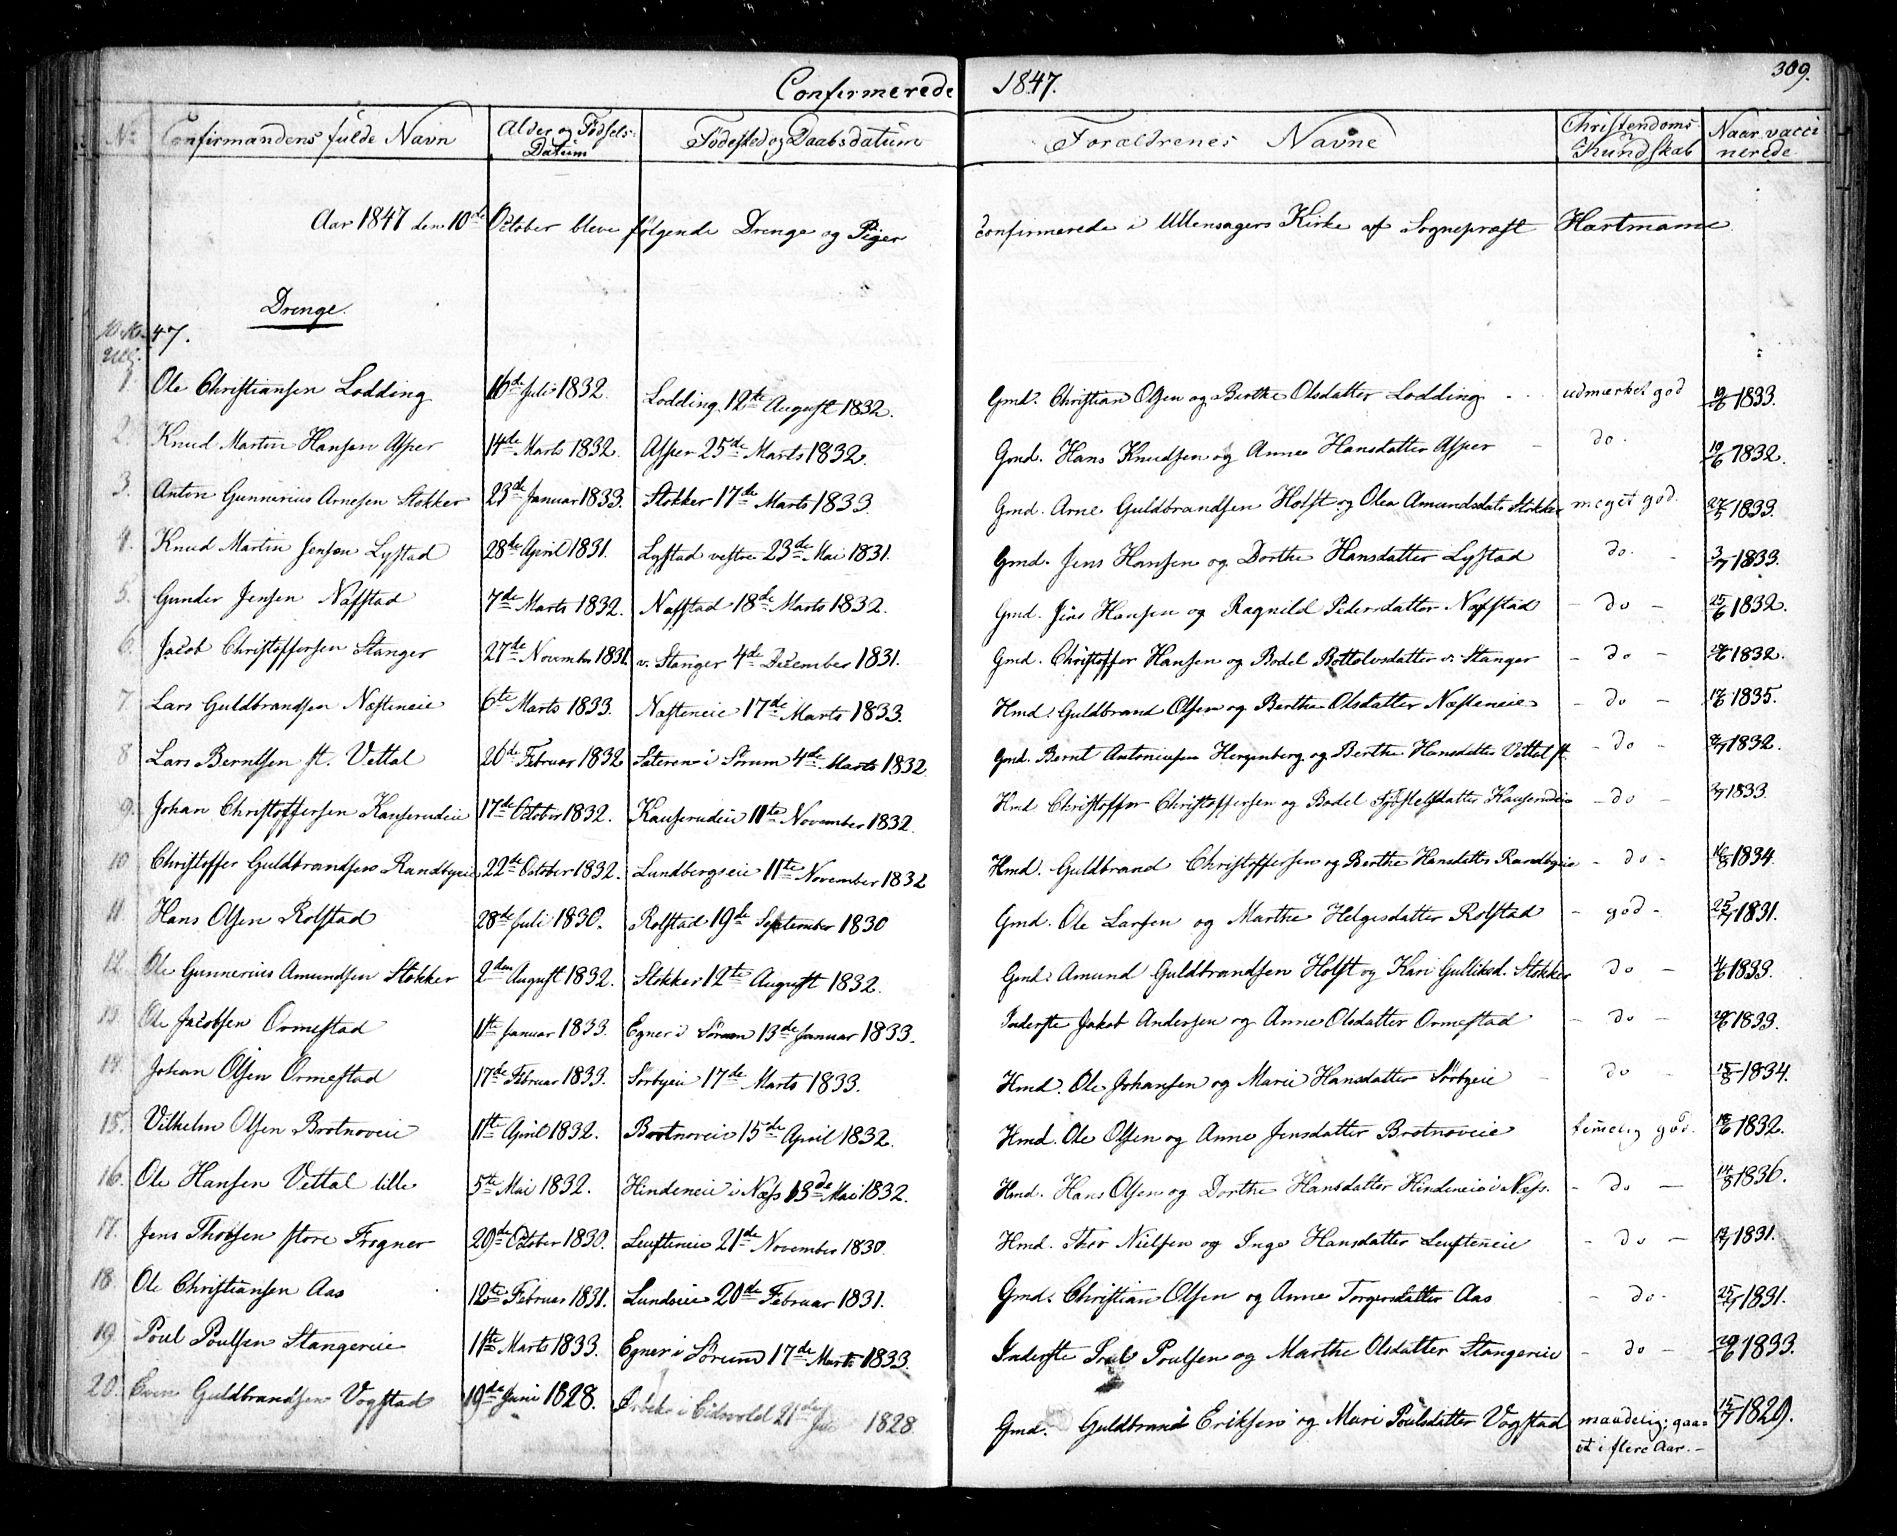 Confirmerede 1847. 309.
No Confirmandens fulde Navn Alder og Fødsels-Datum Fødested og Daabsdatum Forældrenes Navne Christendoms-Kundskab Naar vaccinerede
Aar 1847 den 10de October bleve følgende Drenge og Piger confirmerede i Ullensagers Kirke af Sognepræst Hartmann
Drenge.
47.
1. Ole Christiansen Lodding 16de Juli 1832. Lodding 12te August 1832. Gmd. Christian Olsen og Berthe Olsdatter Lodding udmærket god 12/6 1833.
2. Knud Martin Hansen Asper 14de Marts 1832. Asper 25de Marts 1832. Gmd. Hans Knudsen og Anne Hansdatter Asper do. 19/6 1832.
3. Anton Gunnerius Arnesen Stokker 23de Januar 1833. Stokker 17de Marts 1833 Gmd. Arne Guldbrandsen Holst og Olea Amundsdatr Stokker meget god. 27/5 1833.
4. Knud Martin Jensen Lystad 28de April 1831. Lystad vestre 23de Mai 1831. Gmd. Jens Hansen og Dorthe Hansdatter Lystad do. 3/7 1833.
5. Gunder Jensen Nafstad 7de Marts 1832. Nafstad 18de Marts 1832. Gmd. Jens Hansen og Ragnild Pedersdatter Nafstad - do - 25/6 1832.
6. Jacob Christoffersen Stanger 27de Novembr 1831. v. Stanger 4de December 1831. Gmd. Christoffer Hansen og Bodel Bottolvsdatter v. Stanger - do - 1832.
7. Lars Guldbrandsen Næsteneie 6te Marts 1833. Næsteneie 17de Marts 1833. Hmd. Guldbrand Olsen og Berthe Olsdatter Næsteneie - do - 1835.
8 Lars Berntsen st. Vettal 26de Februar 1832 Sateren i Sørum 4de Marts 1832 Gmd. Bernt Antoniusen Hergenberg og Berthe Hansdatter Vettal st. - do - 1832.
9. Johan Christoffersen Kauserudeie 17de October 1832. Kauserudeie 11te November 1832. Hmd Christoffer Christoffersen og Bodel datter Kauserudeie - do - 1833
10 Christoffer Guldbrandsen Randbyeie 22de October 1832. Lundbergseie 11te November 1832 Hmd. Guldbrand Christoffersen og Berthe Hansdatter Randbyeie - do - 16/8 1834.
11 Hans Olsen Rolstad 28de Juli 1830. Rolstad 19de September 1830 Gmd. Ole Larsen og Marthe Helgesdatter Rolstad - god - 25/7 1831.
12 Ole Gunnerius Amundsen Stokker 2den August 1832. Stokker 12te August 1832. Gmd. Amund Guldbrandsen Holst og Kari Gulliksd. Stokker do - 4/6 1833.
13 Ole Jacobsen Ormestad 11te Januar 1833. Egner i Sørum 13de Januar 1833. Inderste Jakob Andersen og Anne Olsdatter Ormestad - do - 1833.
14 Johan Olsen Ormestad 17de Februar 1833. Sørbyeie 17de Marts 1833. Hmd. Ole Johansen og Marie Hansdatter Sørbyeie do - 15/8 1834.
15. Vilhelm Olsen Brotnoveie 11te April 1832. Brotnoveie 15de April 1832. Hmd. Ole Olsen og Anne Jensdatter Brotnoveie temelig god. 1832.
16. Ole Hansen Vettal lille 5te Mai 1832. Hindeneie i Næss 13de Mai 1832. Hmd. Hans Olsen og Dorthe Hansdatter Hindeneie i Næss. - do - 14/8 1836.
17. Jens Thorsen store Frogner 29de October 1830. Leufteneie 21de November 1830. Hmd. Thor Nielsen og Inge Hansdatter Leufteneie - do - 1831.
18. Ole Christiansen Aas 12te Februar 1831. Lundseie 20de Februar 1831. Gmd. Christian Olsen og Anne Torgersdatter Aas - do - 25/7 1831.
19 Poul Poulsen Stangereie 11te Marts 1833. Egner i Sørum 17de Marts 1833. Inderste Poul Poulsen og Marthe Olsdatter Stangereie - do - 20/6 1833.
20. Even Guldbrandsen Vogstad 19de Juni 1828. Ørbek i Eidsvold 21de 1828. Gmd. Guldbrand Eriksen og Mari Poulsdatter Vogstad maadelig; gaaet i flere Aar. - 15/7 1829.